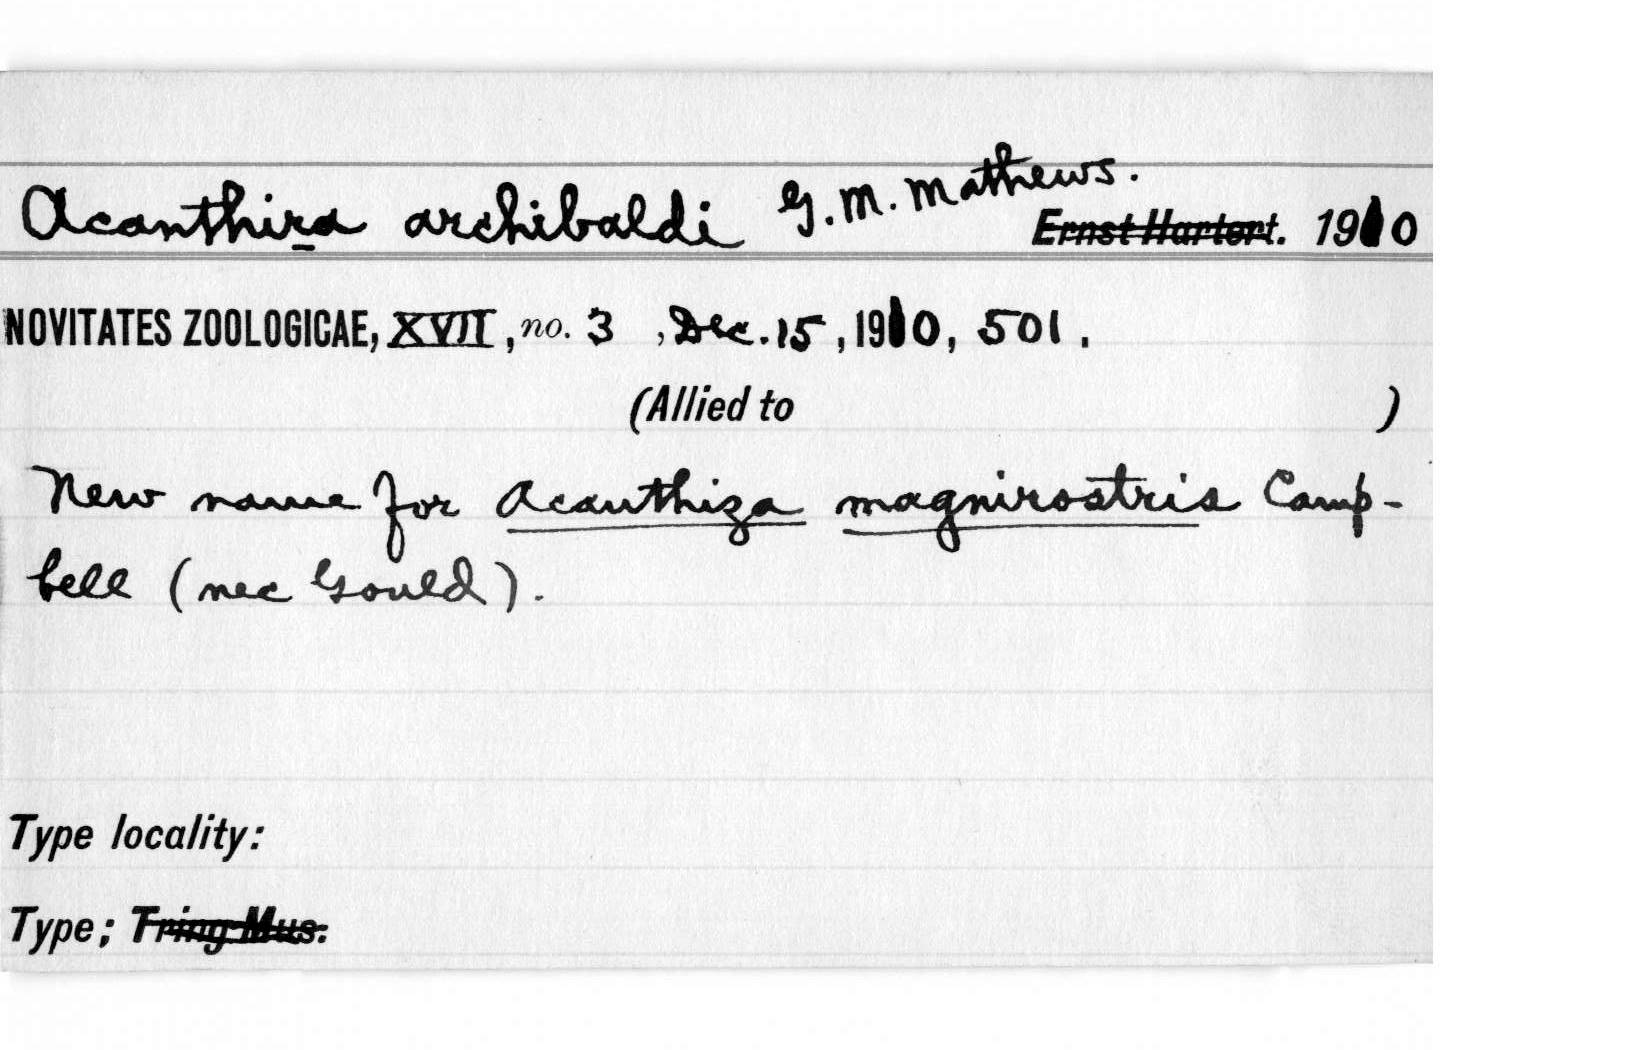 Acanthiza archibaldi G. M. Mathews.
Ernst Hartert. 1910
NOVITATES ZOOLOGICAE, XVII, no. 3, Dec. 15, 1910, 501.
(Allied to )
New name for Acanthiza magnirostris Camp-
bell (nec Gould).
Type locality:
Type; Tring Mus.